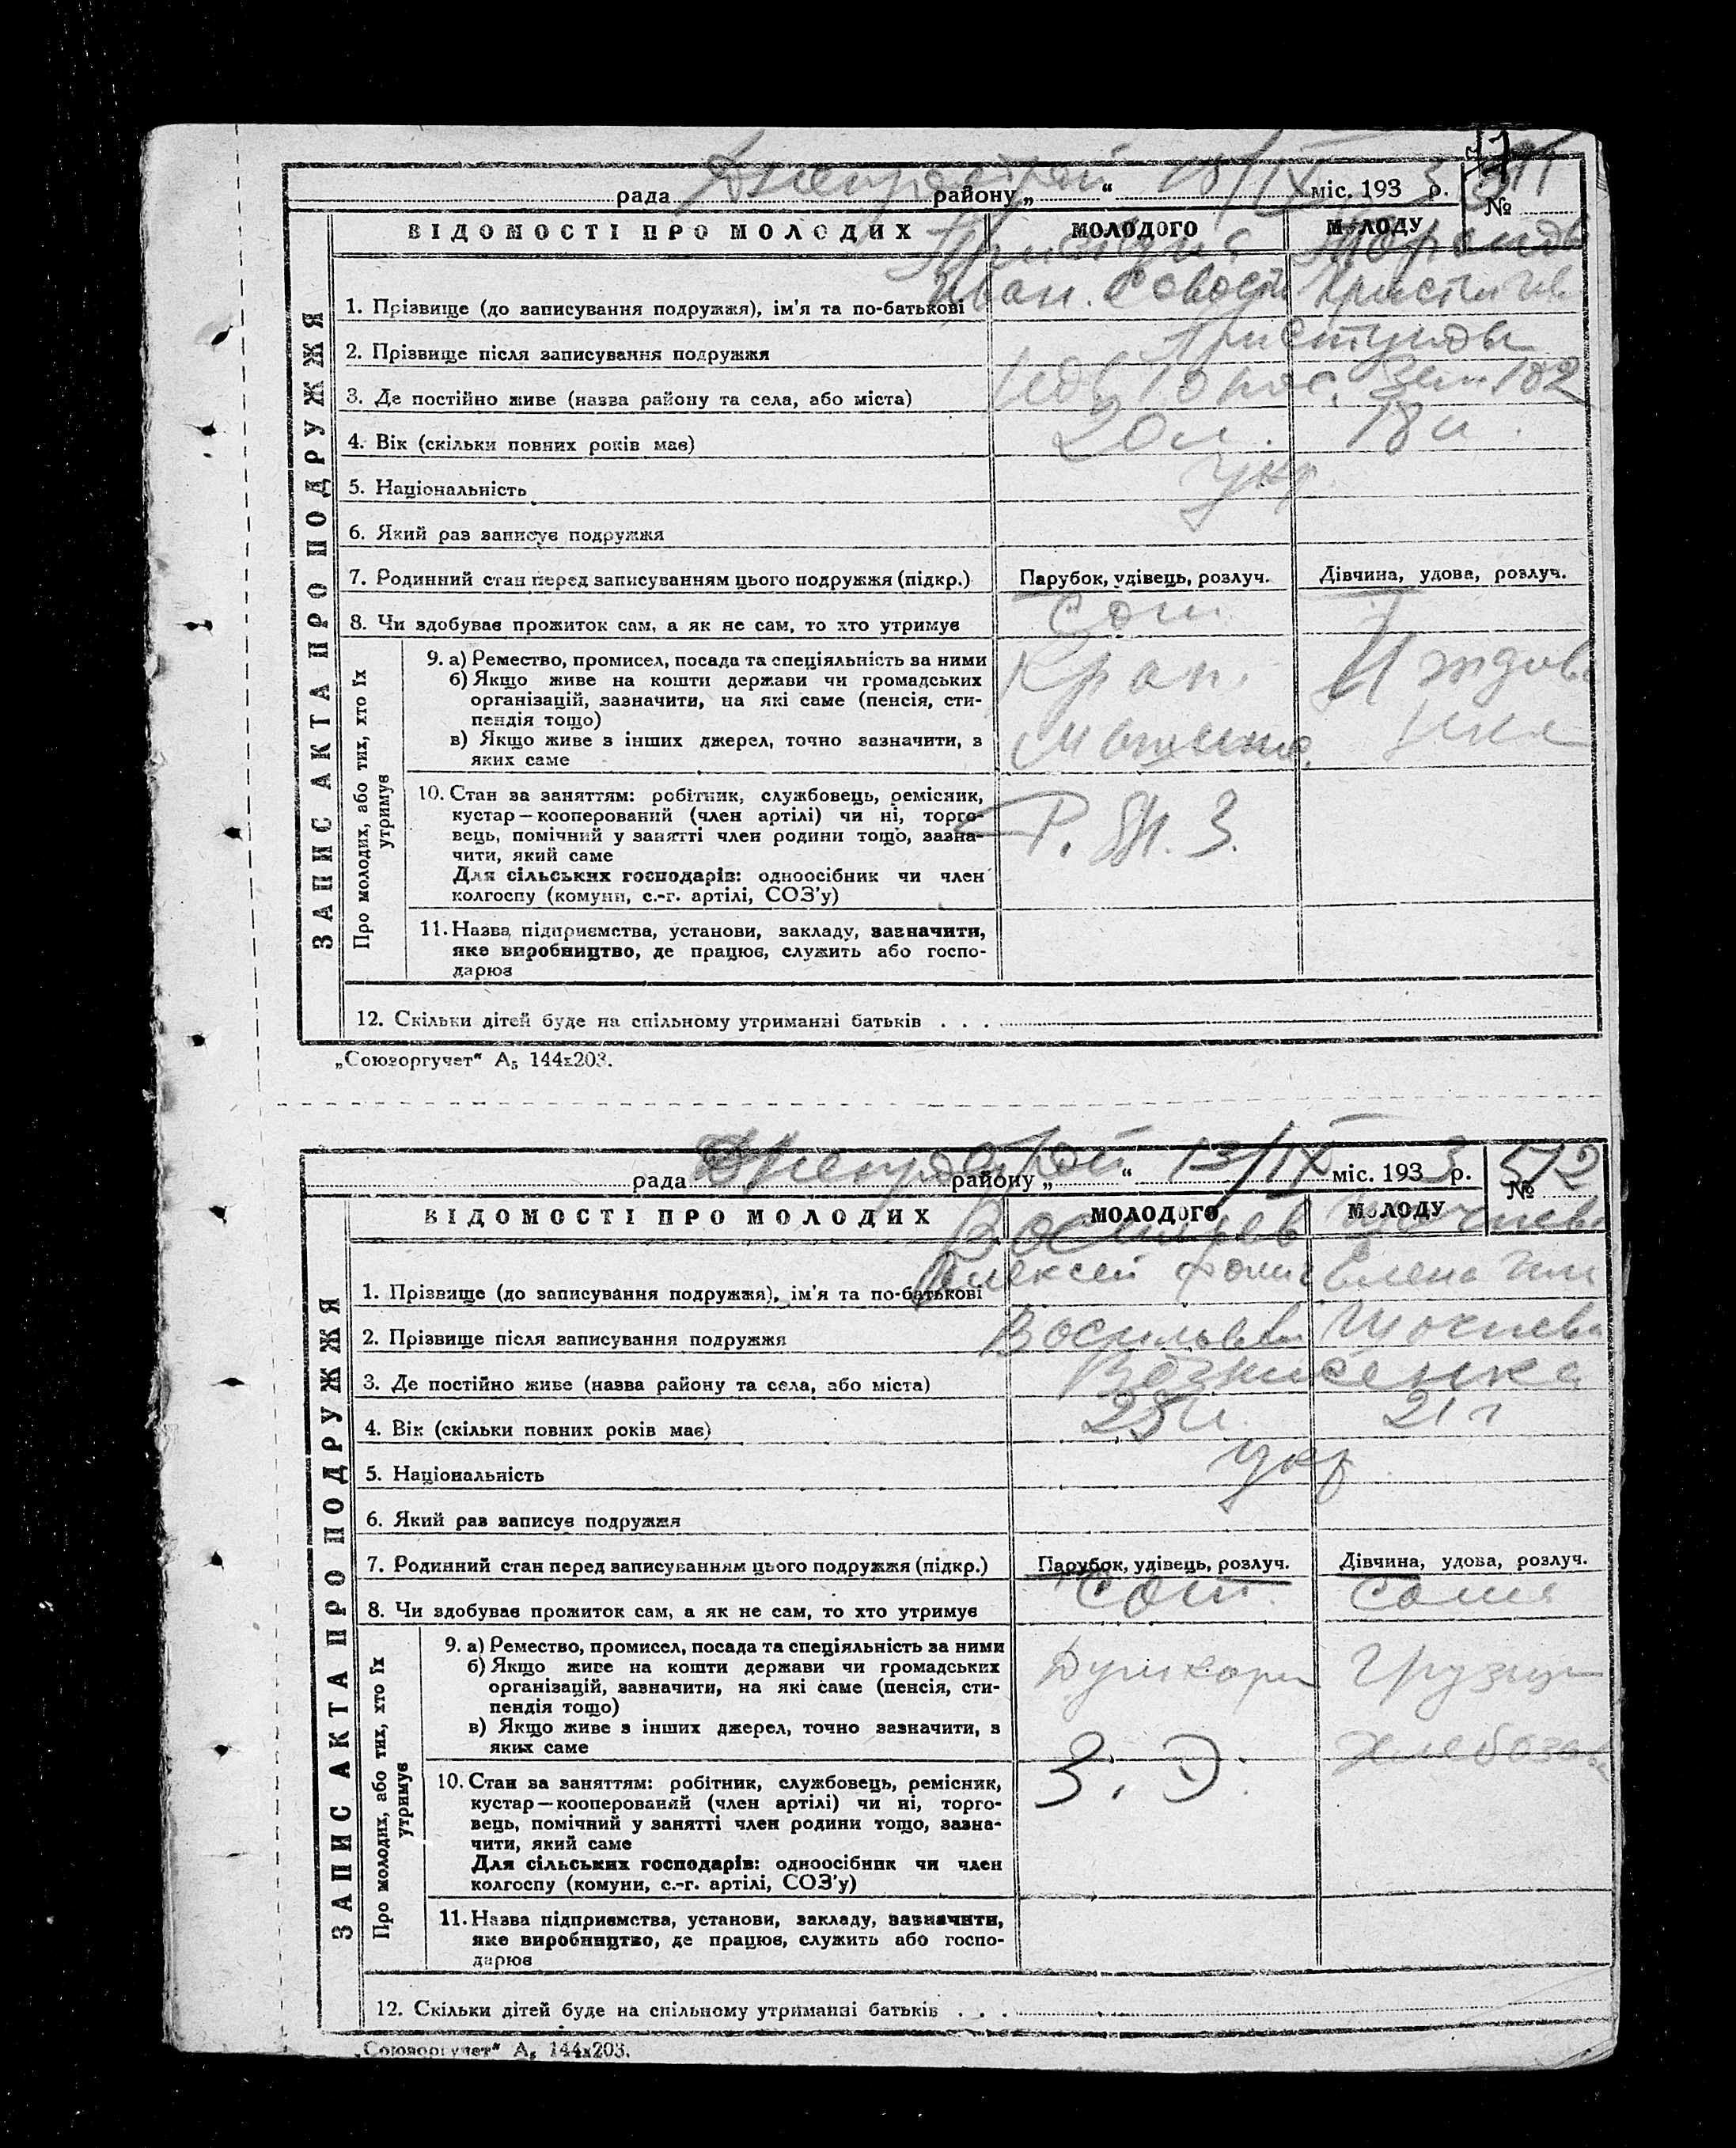 рада Днепрострой району „ “ 18/IX міс. 193 3 р. №
ВІДОМОСТІ ПРО МОЛОДИХ МОЛОДОГО МОЛОДУ
ЗАПИС АКТА ПРО ПОДРУЖЖЯ
1. Прізвище (до записування подружжя), ім'я та по-батькові Иван
2. Прізвище після записування подружжя
3. Де постійно живе (назва району та села, або міста)
4. Вік (скільки повних років має) 20 л. 18 л.
5. Національність укр.
6. Який раз записує подружжя
7. Родинний стан перед записуванням цього подружжя (підкр.) Парубок, удівець, розлуч. Дівчина, удова, розлуч.
8. Чи здобуває прожиток сам, а як не сам, то хто утримує Сам
Про молодих, або тих, хто їх утримує
9. а) Ремество, промисел, посада та спеціяльність за ними
б) Якщо живе на кошти держави чи громадських
організацій, зазначити, на які саме (пенсія, сти-
пендія тощо)
в) Якщо живе з інших джерел, точно зазначити, з
яких саме
Кран. Иждове
машинис.
10. Стан за заняттям: робітник, службовець, ремісник,
кустар—кооперований (член артілі) чи ні, торго-
вець, помічний у занятті член родини тощо, зазна-
чити, який саме
Для сільських господарів: одноосібник чи член
колгоспу (комуни, с.-г. артілі, СОЗ'у)
11. Назва підприємства, установи, закладу, зазначити,
яке виробництво, де працює, служить або госпо-
дарює
12. Скільки дітей буде на спільному утриманні батьків . . .
„Союзоргучет“ А5 144х203.
рада Днепрострой району „ “ 13/IX міс. 193 3 р. № 512
ВІДОМОСТІ ПРО МОЛОДИХ МОЛОДОГО МОЛОДУ
Васильев
ЗАПИС АКТА ПРО ПОДРУЖЖЯ
1. Прізвище (до записування подружжя), ім'я та по-батькові Алексей Елена
2. Прізвище після записування подружжя
3. Де постійно живе (назва району та села, або міста) Вознисенка
4. Вік (скільки повних років має) 25 л. 21 г
5. Національність укр
6. Який раз записує подружжя
7. Родинний стан перед записуванням цього подружжя (підкр.) Парубок, удівець, розлуч. Дівчина, удова, розлуч.
8. Чи здобуває прожиток сам, а як не сам, то хто утримує Сам. Сама
Про молодих, або тих, хто їх утримує
9. а) Ремество, промисел, посада та спеціяльність за ними
б) Якщо живе на кошти держави чи громадських
організацій, зазначити, на які саме (пенсія, сти-
пендія тощо)
в) Якщо живе з інших джерел, точно зазначити, з
яких саме
Грузщ
З. Э. хлебозав
10. Стан за заняттям: робітник, службовець, ремісник,
кустар—кооперований (член артілі) чи ні, торго-
вець, помічний у занятті член родини тощо, зазна-
чити, який саме
Для сільських господарів: одноосібник чи член
колгоспу (комуни, с.-г. артілі, СОЗ'у)
11. Назва підприємства, установи, закладу, зазначити,
яке виробництво, де працює, служить або госпо-
дарює
12. Скільки дітей буде на спільному утриманні батьків . . .
„Союзоргучет“ А5 144х203.